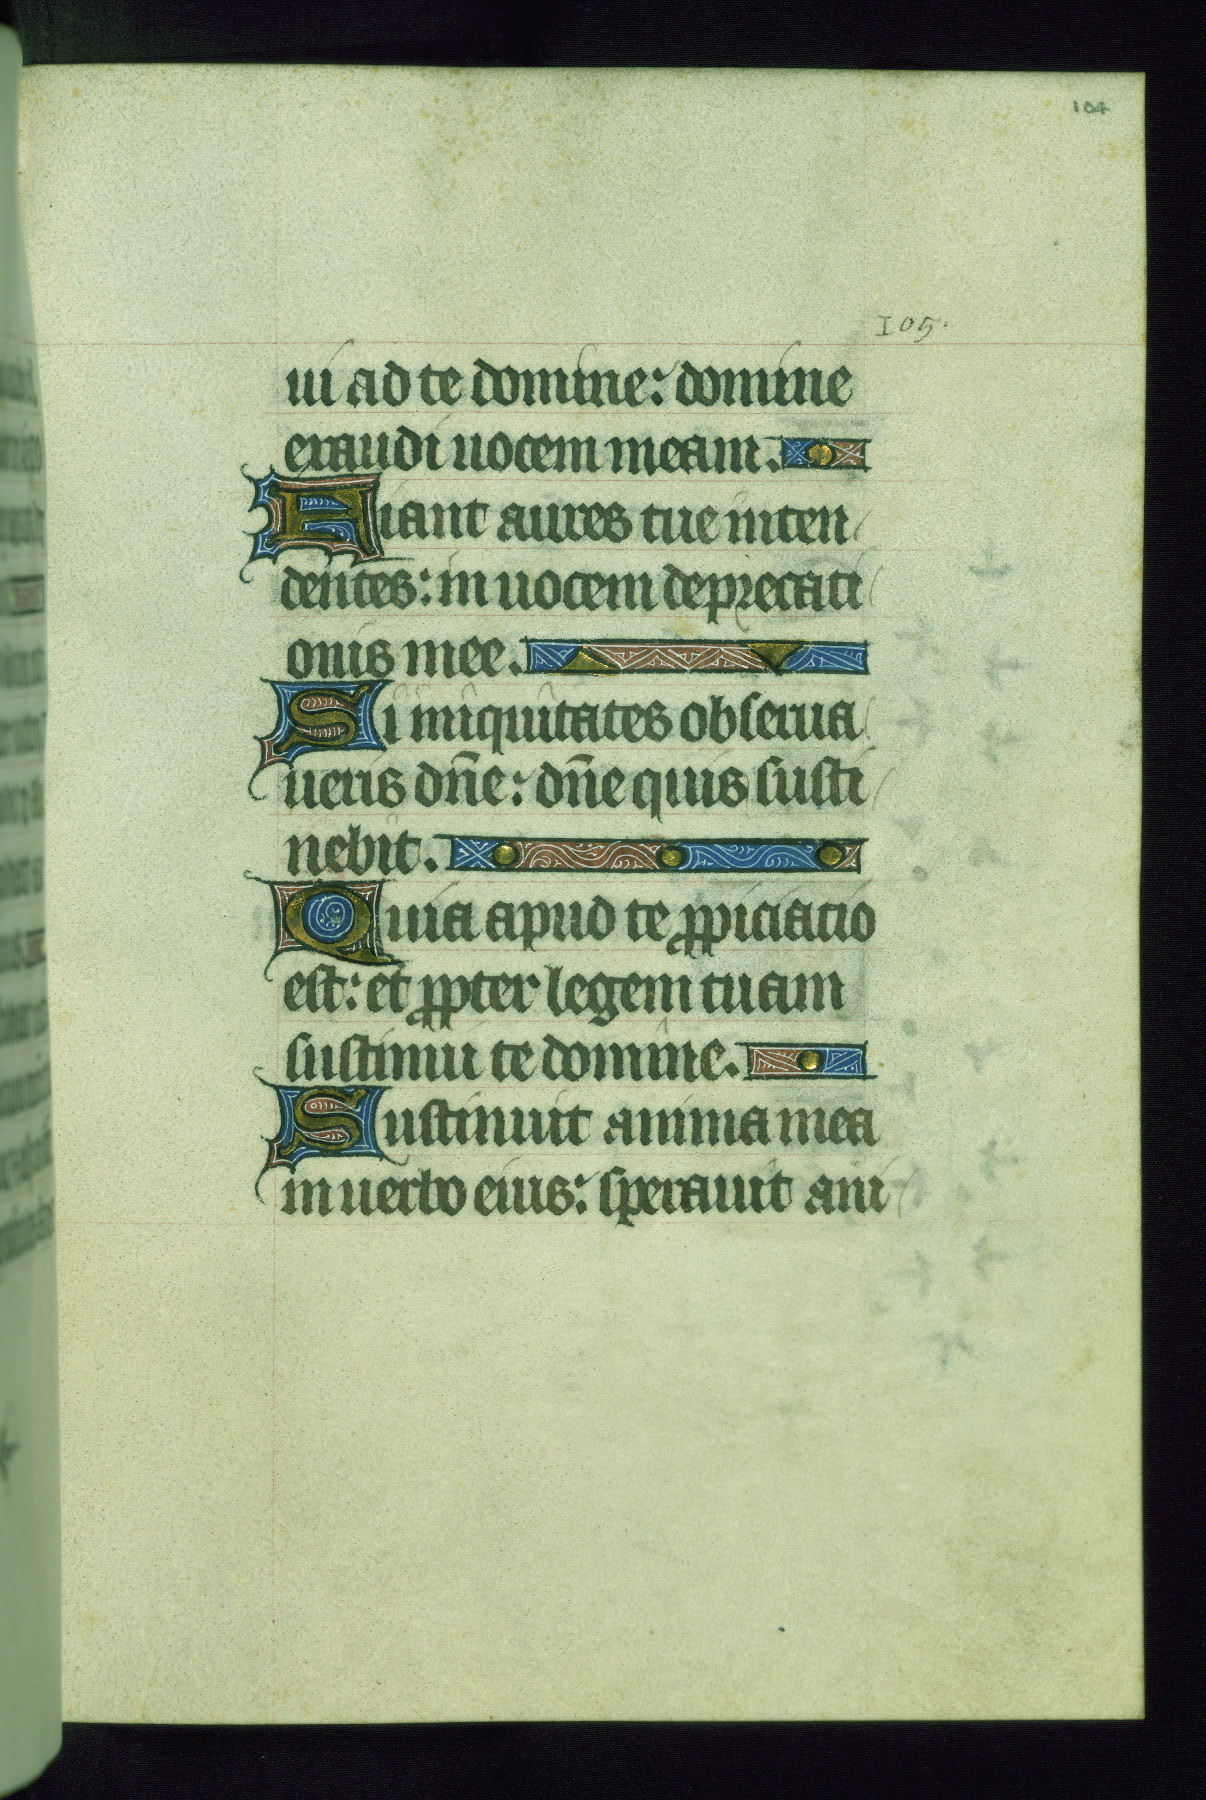 104
105.
ui ad te domine: domine
exaudi uocem meam.
Fiant aures tue inten
dentes: in uocem deprecati
onis mee.
Si iniquitates obserua
ueris dn̄e: dn̄e quis susti
nebit.
Quia apud te ꝓpiciacio
est: et ꝓpter legem tuam
sustinui te domine.
Sustinuit anima mea
in uerbo eius: sperauit ani